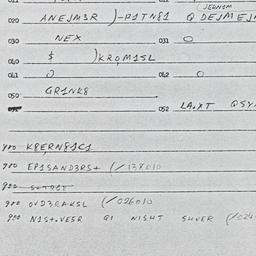 020 ANEJM3R )-P1TN81 Q DEJM
030 NEX 031 O
040 $ )KROM1SL
041 O 042 O
050 GR1NK8
052 LA.XT QSY
900 K8ERN81C1
900 EP1SAND3RS+ (/138010
900
900 OVD3RAKSL (/026010
900 N1S+.VESR Q1 N1SHT SHVER (/024